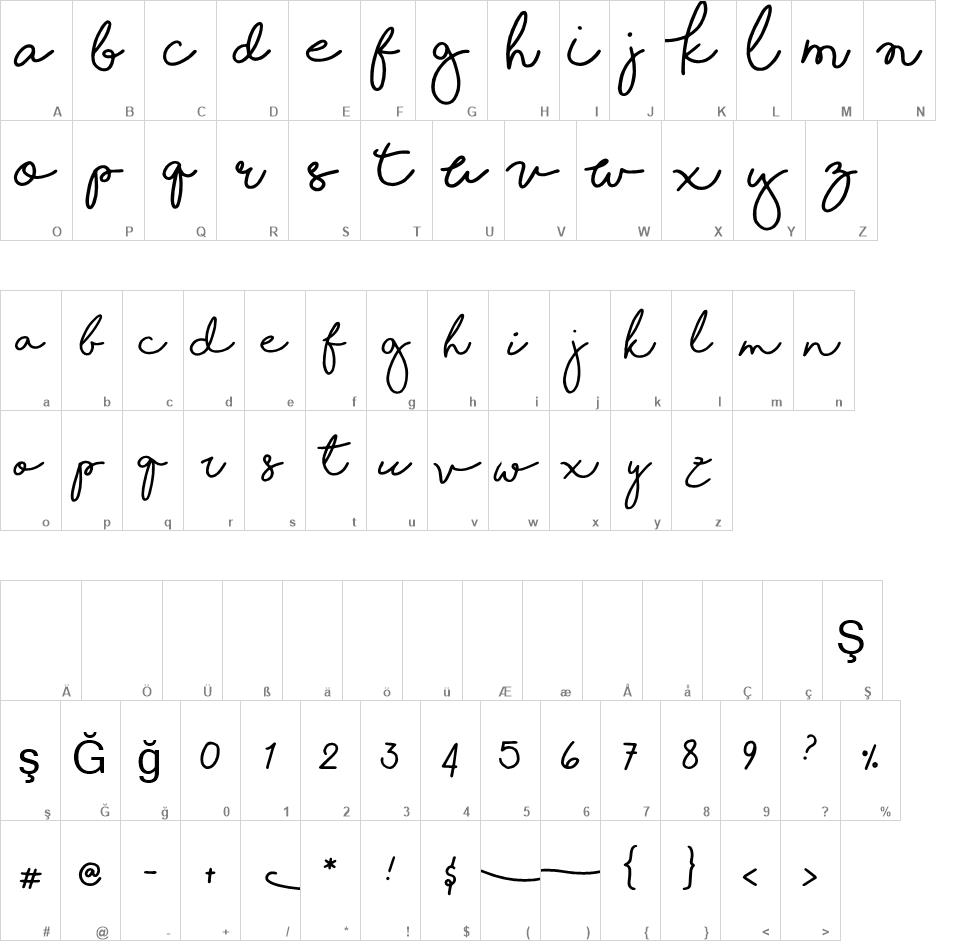 a b c d e f g h i j k l m n
A B C D E F G H I J K L M N
o p q r s t u v w x y z
O P Q R S T U V W X Y Z
a b c d e f g h i j k l m n
a b c d e f g h i j k l m n
o p q r s t u v w x y z
o p q r s t u v w x y z
Ş
Ä Ö Ü ß ä ö ü Æ æ Å å Ç ç Ş
ş Ğ ğ 0 1 2 3 4 5 6 7 8 9 ? %
ş Ğ ğ 0 1 2 3 4 5 6 7 8 9 ? %
# @ - + * ! $ { } < >
# @ - + / * ! $ ( ) { } < >